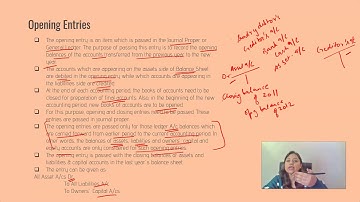 Opening Entries
The opening entry is an item which is passed in the Journal Proper or
General Ledger. The purpose of passing this entry is to record the opening
balances of the accounts transferred from the previous year to the new
year.
The accounts which are appearing on the assets side of Balance Sheet
are debited in the opening entry while which accounts are appearing in
the liabilities side are credited.
At the end of each accounting period, the books of accounts need to be
closed for preparation of final accounts. Also, in the beginning of the new
accounting period, new books of accounts are to be opened.
For this purpose, opening and closing entries need to be passed. These
entries are passed in journal proper.
The opening entries are passed only for those ledger A/c balances which
are carried forward from earlier period to the current accounting period. In
other words, the balances of assets, liabilities and owners' capital and
equity accounts are only considered for such opening entries.
The opening entry is passed with the closing balances of assets and
liabilities & capital accounts in the last year's balance sheet.
The entry can be given as:
All Asset A/cs Dr.
To All Liabilities A/c
To Owners' Capital A/cs
Creditors A/c
Bank A/c
Cash A/c
Asset A/c
Dr Asset A/c
Closing balance
of 2011
Opg balance
of 2012
Creditors A/c